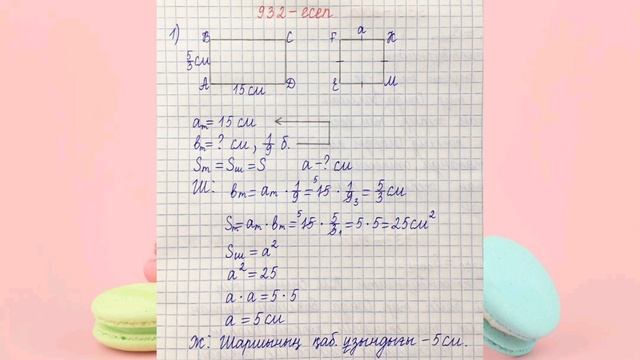 932-есеп
1) B C F a K
5/3 см
A 15 см D E M
aт = 15 см
bт = ? см, 1/9 б.
Sт = Sш = S a - ? см
Ш: bт = aт · 1/9 = 15 · 1/9 = 5/3 см
Sт = aт · bт = 15 · 5/3 = 5 · 5 = 25 см²
Sш = a²
a² = 25
a · a = 5 · 5
a = 5 см
Ж: Шаршының қаб. ұзындығы - 5 см.